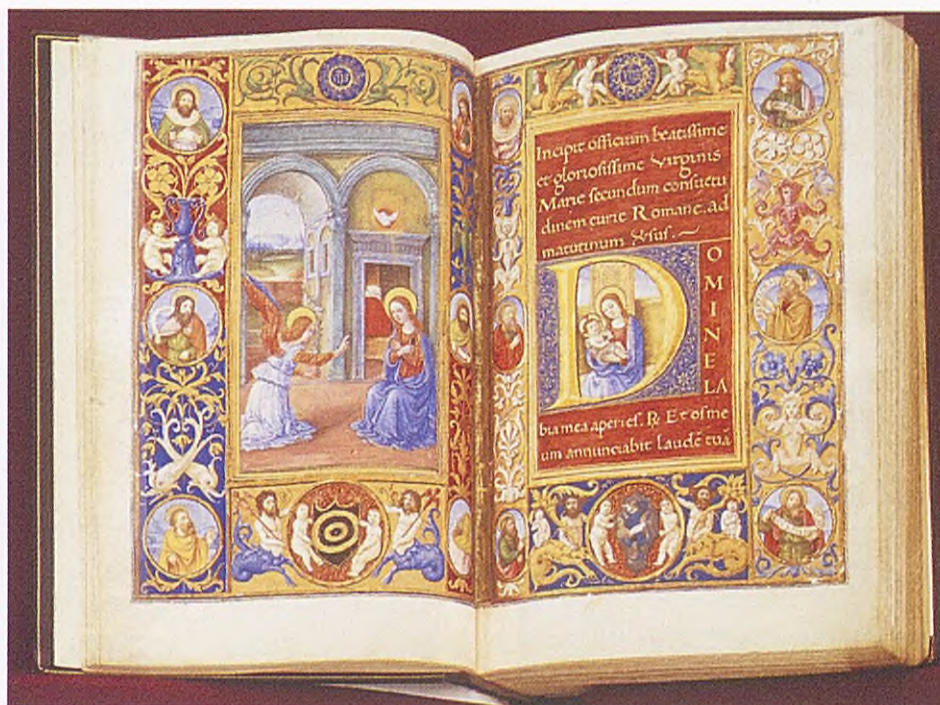 Incipit officium beatissime
et gloriosissime Virginis
Marie secundum consuetu
dinem curie Romane. ad
matutinum Vsus.
DOMINE LA
bia mea aperies. ℟ Et os me
um annunciabit laudē tuā